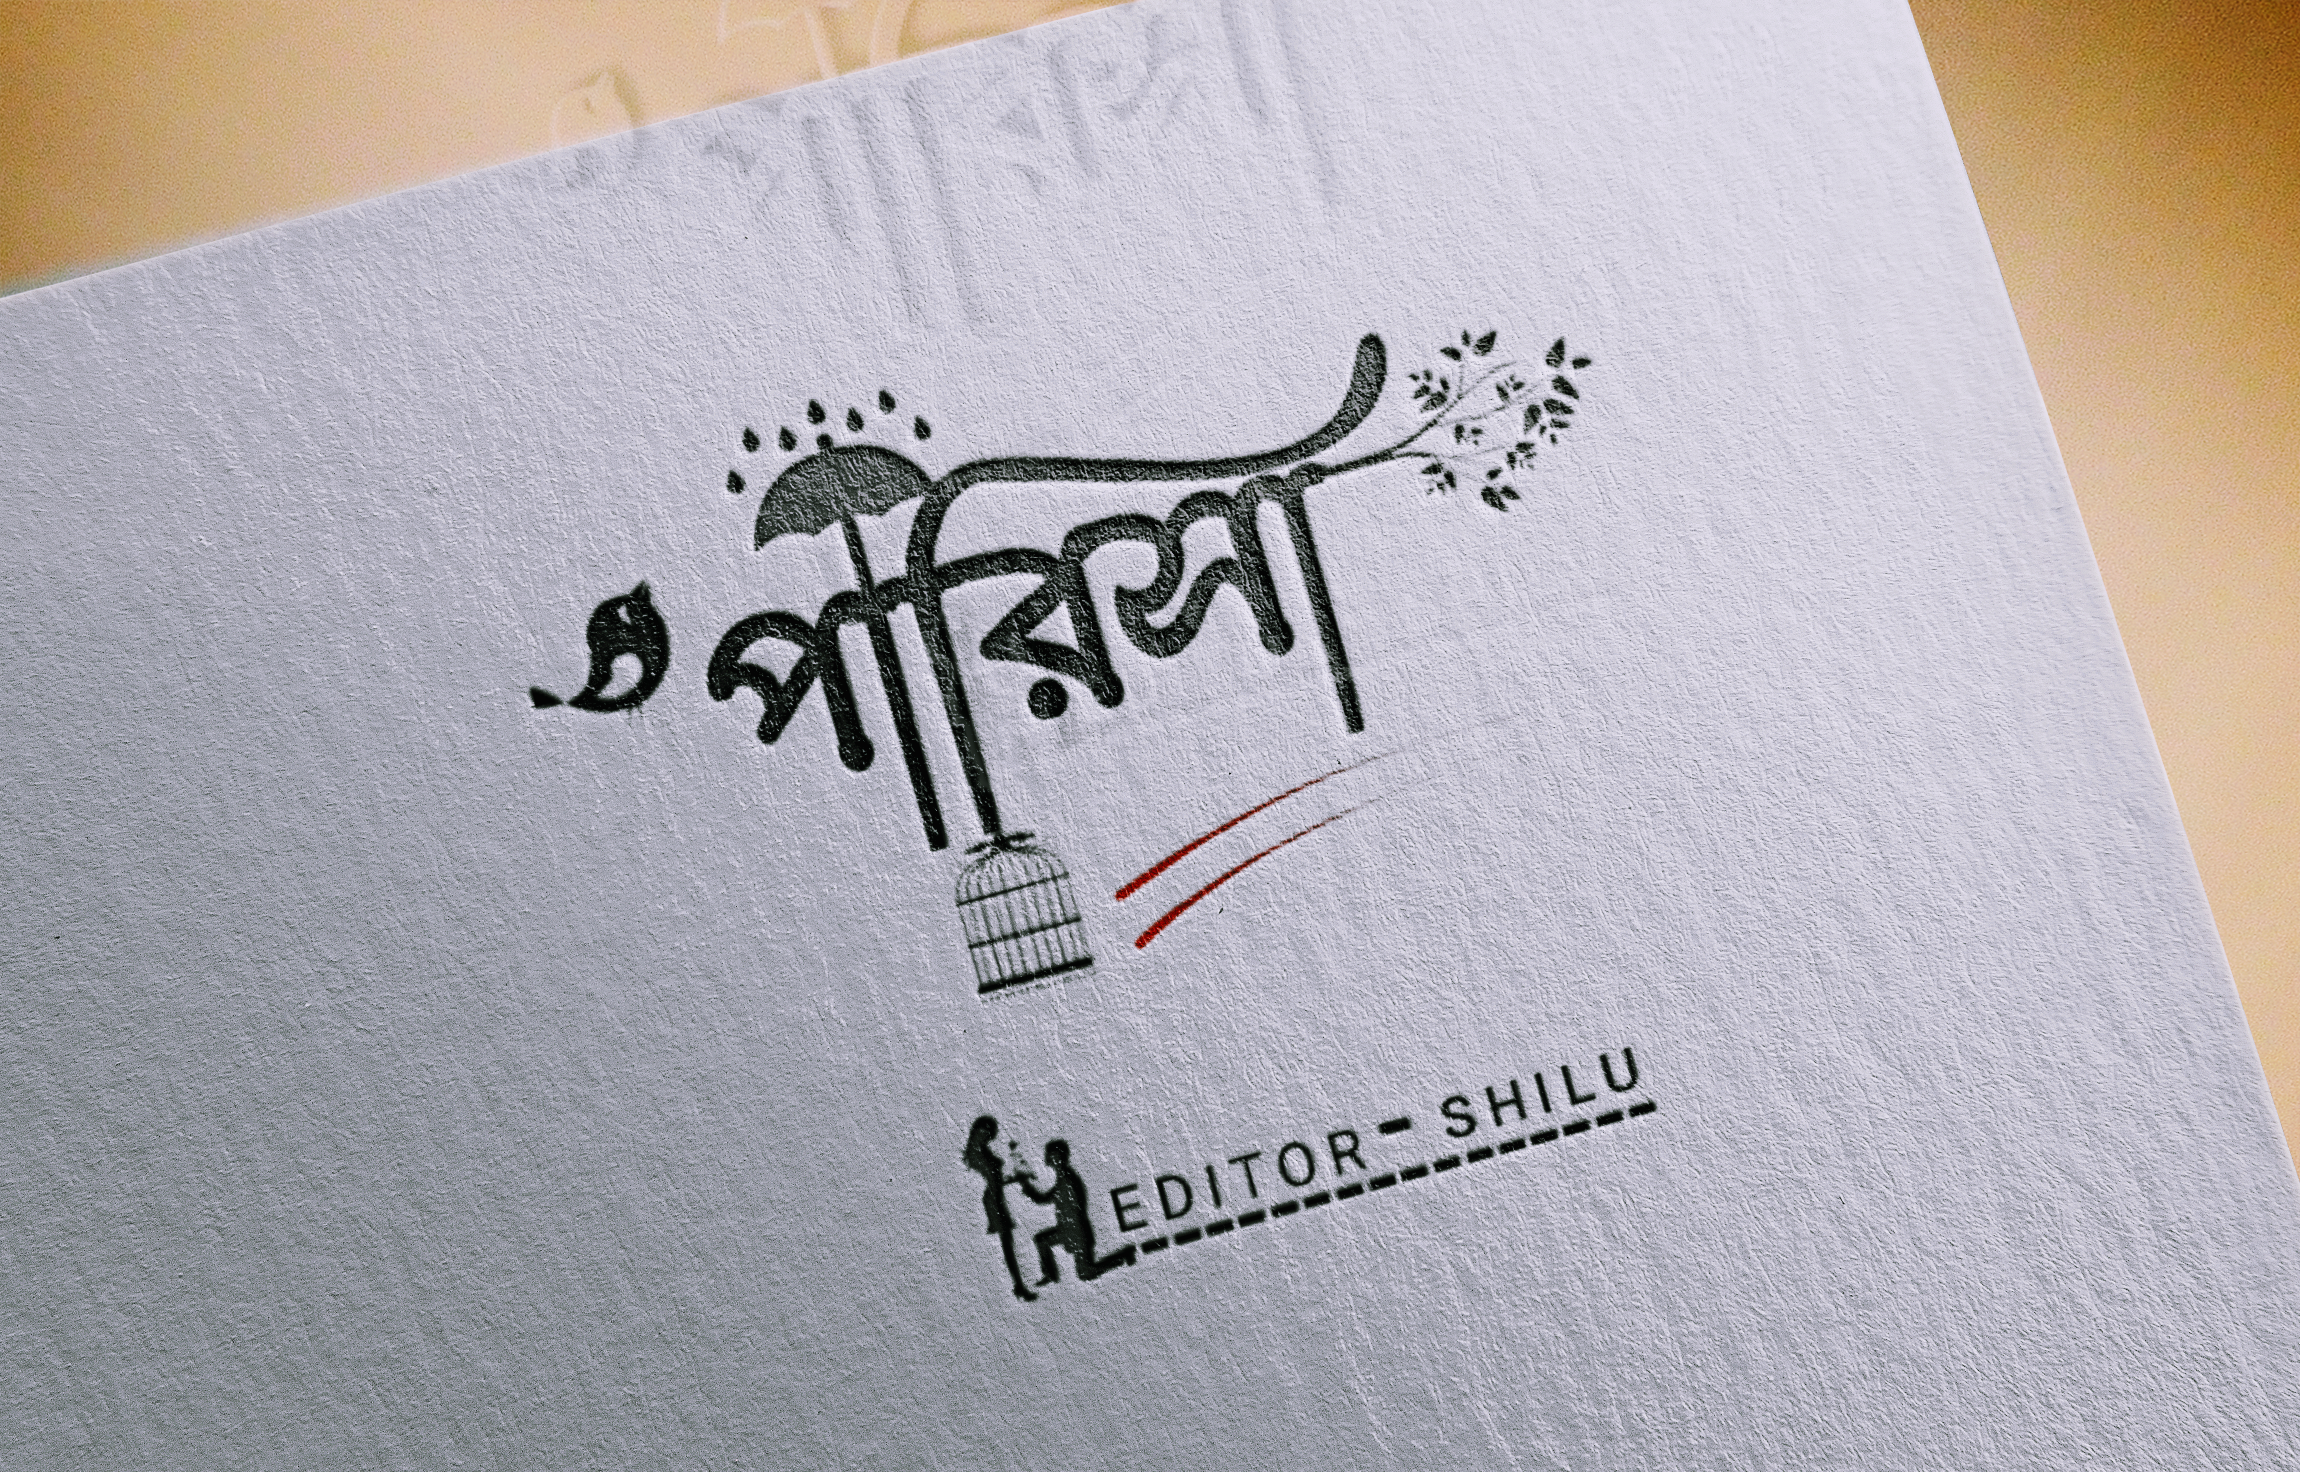 পারিসা
EDITOR- SHILU